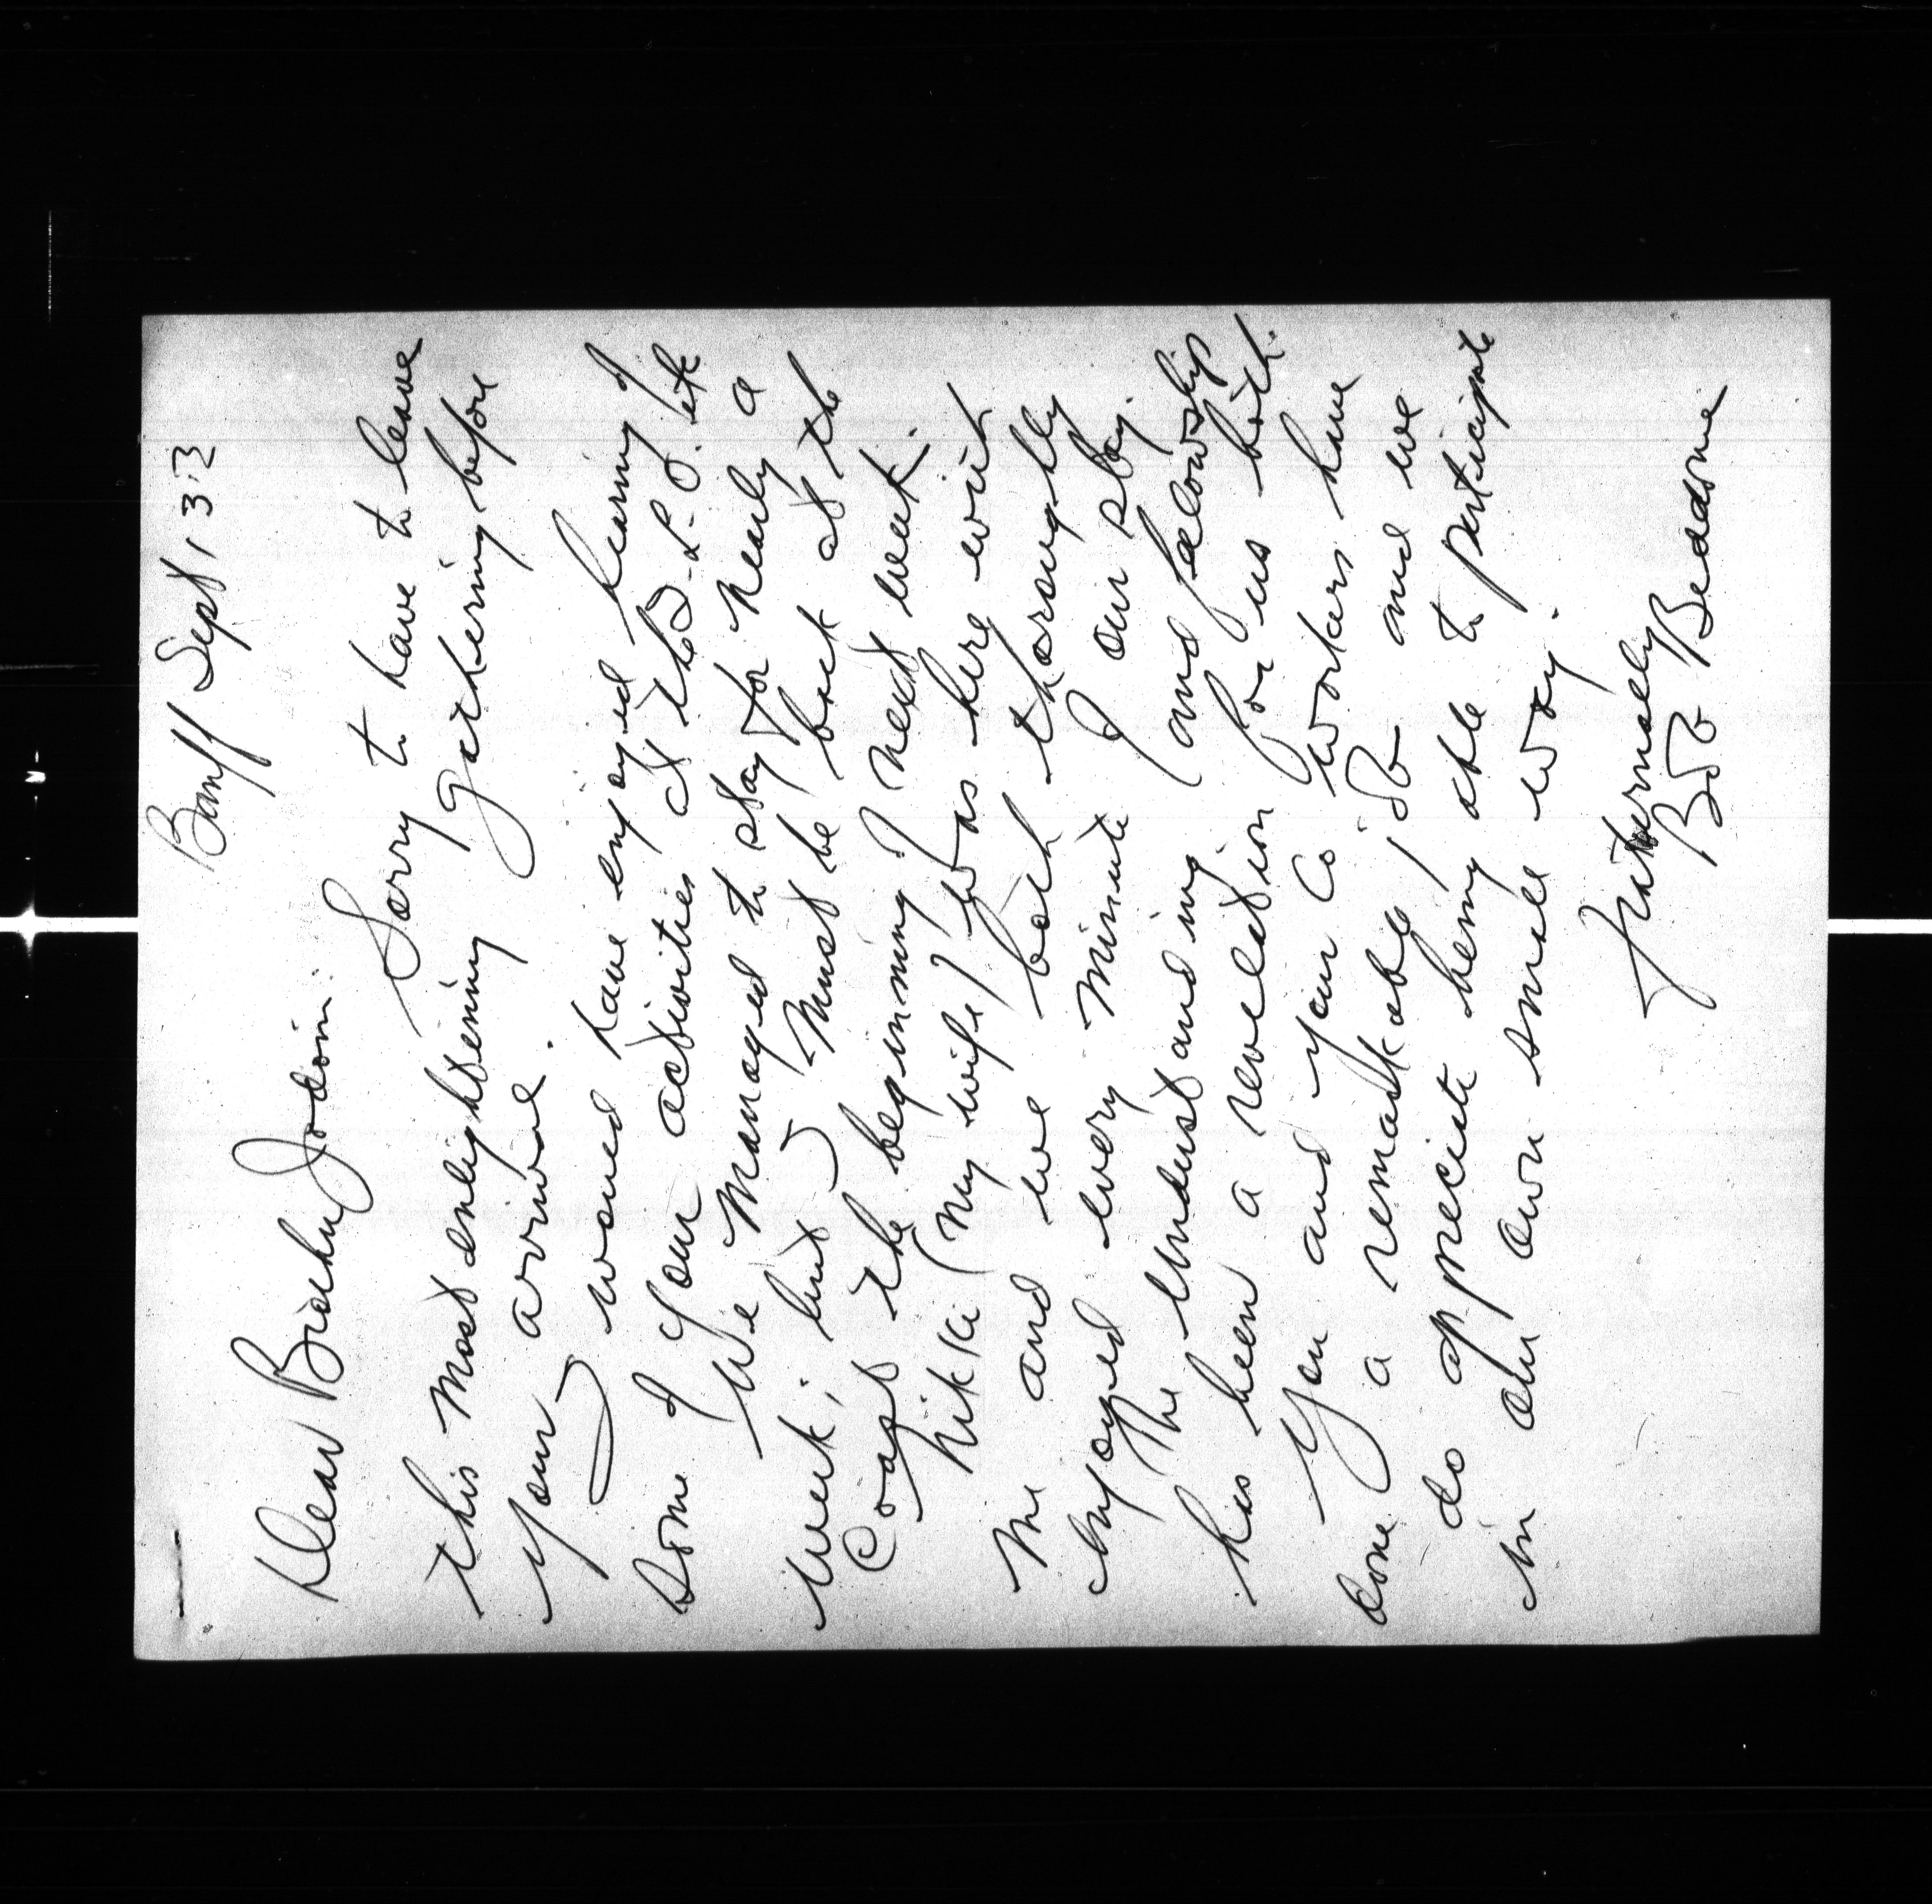 Banff Sept 1 3
Dear Brother Jodoin:
Sorry to have to leave
this most enlightening gathering before
your arrival.
I would have enjoyed hearing of
some of your activities at the I.L.O. etc
We managed to stay for nearly a
week; but I must be back at the
Coast the beginning of next week.
Nikki (my wife) was here with
me and we both thoroughly
enjoyed every minute of our stay.
The understanding (and fellowship
has been a revelation for us both.
You and your co workers have
done a remarkable job and we
do appreciate being able to participate
in our own small way.
fraternally
Bob Beddome